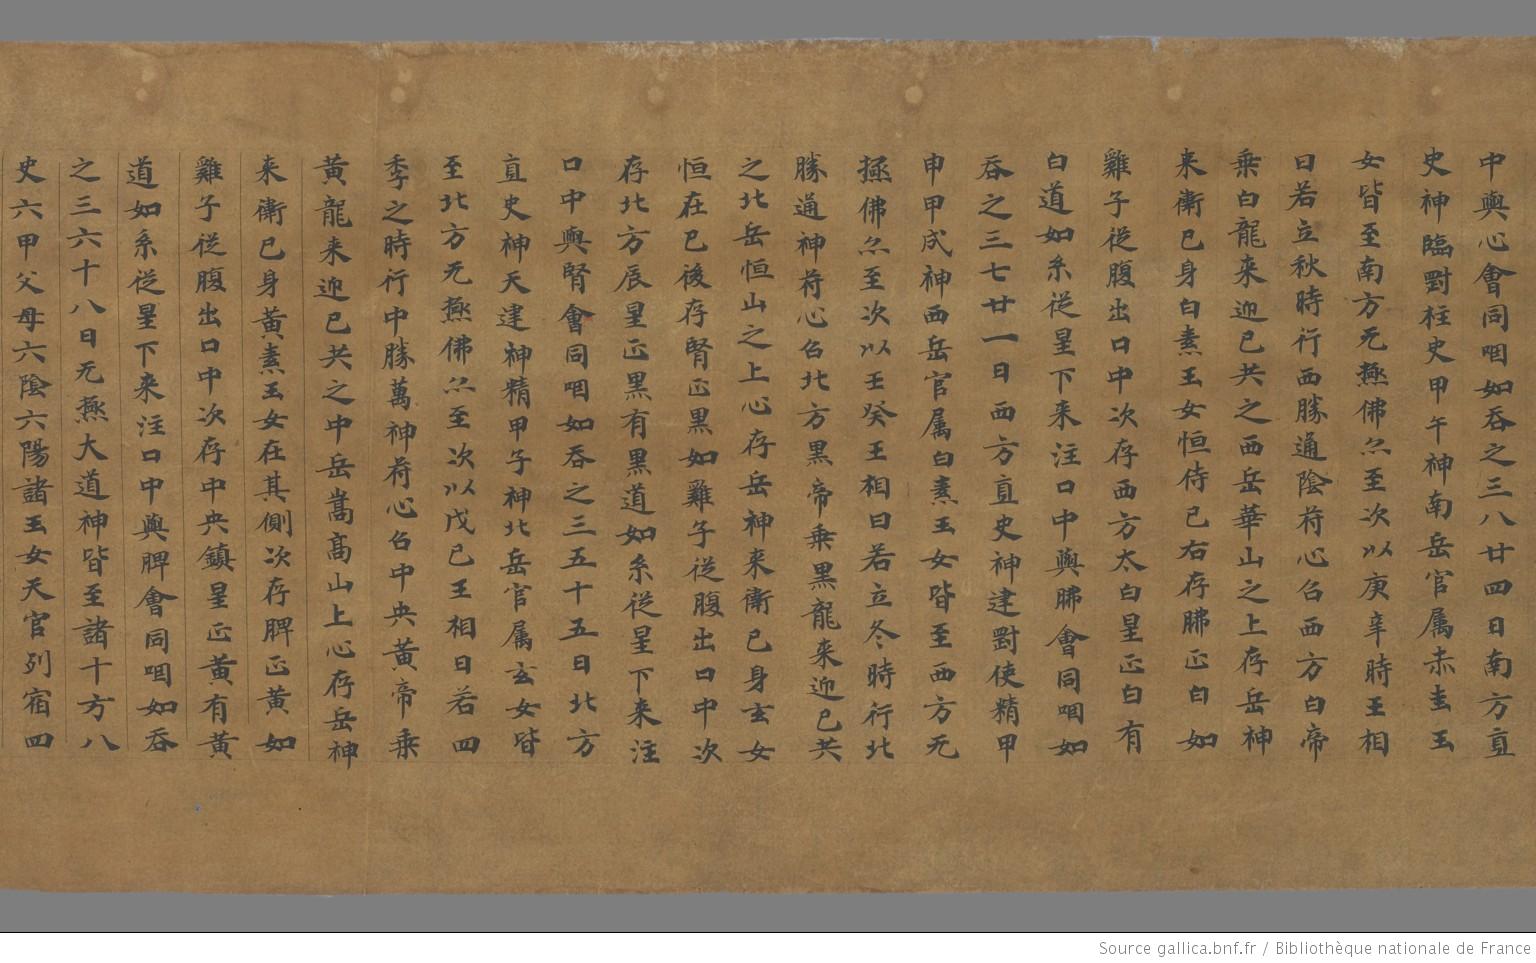 中與心會同咽如吞之三八廿四日南方直
史神臨對柱史甲午神南岳官属赤圭玉
女皆至南方无極佛然至次以庚辛時王相
日若立秋時行西勝通陰符心名西方白帝
乘白龍来迎已共之西岳華山之上存岳神
来衛已身白素玉女恒侍已右存肺正白如
雞子從腹出口中次存西方太白星正白有
白道如系從星下来注口中與肺會同咽如
吞之三七廿一日西方直史神建對使精甲
申甲戌神西岳官属白素玉女皆至西方无
極佛然至次以壬癸王相日若立冬時行北
勝通神符心名北方黑帝乘黑龍来迎已共
之北岳恒山之上心存岳神来衛已身玄女
恒在已後存腎正黑如雞子從腹出口中次
存北方辰星正黑有黑道如系從星下来注
口中與腎會同咽如吞之三五十五日北方
直史神天建神精甲子神北岳官属玄女皆
至北方无極佛然至次以戊已王相日若四
季之時行中勝萬神符心名中央黃帝乘
黃龍来迎已共之中岳嵩高山上心存岳神
来衛已身黃素玉女在其側次存脾正黃如
雞子從腹出口中次存中央鎮星正黃有黃
道如系從星下来注口中與脾會同咽如吞
之三六十八日无極大道神皆至諸十方八
史六甲父母六陰六陽諸玉女天官列宿四
Source gallica.bnf.fr / Bibliothèque nationale de France